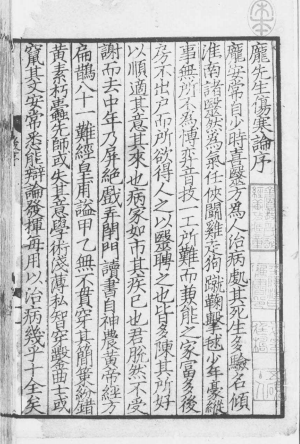 龐先生傷寒論序
龐安常自少時喜醫方為人治病處其死生多驗名傾
淮南諸醫然為氣任俠鬪雞走狗蹴鞠擊毬少年豪縱
事無所不為博弈音技一工所難而兼能之家富多後
房不出戶而所欲得人之以醫聘之也皆多陳其所好
以順適其意其來也病家如市其疾已也君脫然不受
謝而去中年乃屏絕戲弄閉門讀書自神農黃帝經方
扁鵲八十一難經皇甫謐甲乙無不貫穿其簡策紛錯
黃素朽蠹先師或失其意學術淺薄私智穿鑿曲士或
竄其文安常悉能辯論發揮每用以治病幾乎十全矣